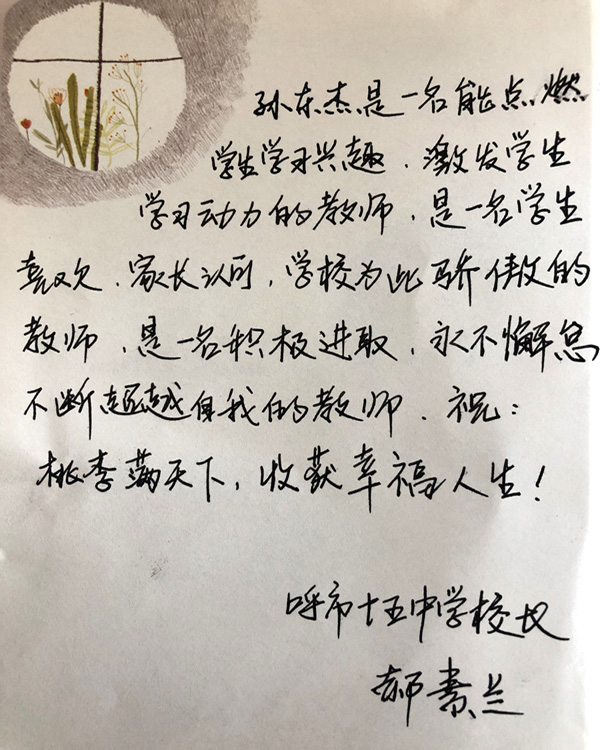 孙东杰是一名能点燃
学生学习兴趣、激发学生
学习动力的教师，是一名学生
喜欢、家长认可，学校为此骄傲的
教师，是一名积极进取、永不懈怠
不断超越自我的教师。祝：
桃李满天下，收获幸福人生！
呼市十五中学校长
郝素兰